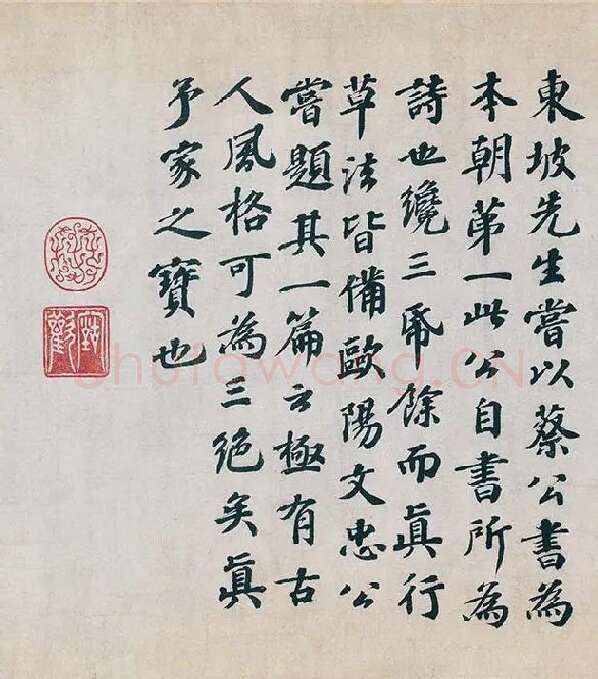 東坡先生嘗以蔡公書為
本朝苐一此公自書所為
詩也纔三帋餘而眞行
草法皆備歐陽文忠公
嘗題其一篇云極有古
人風格可為三絕矣眞
予家之寶也
shufawang.CN